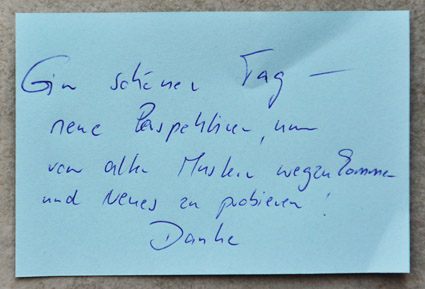 Ein schöner Tag –
neue Perspektiven, um
von alten Mustern wegzukommen
und Neues zu probieren!
Danke